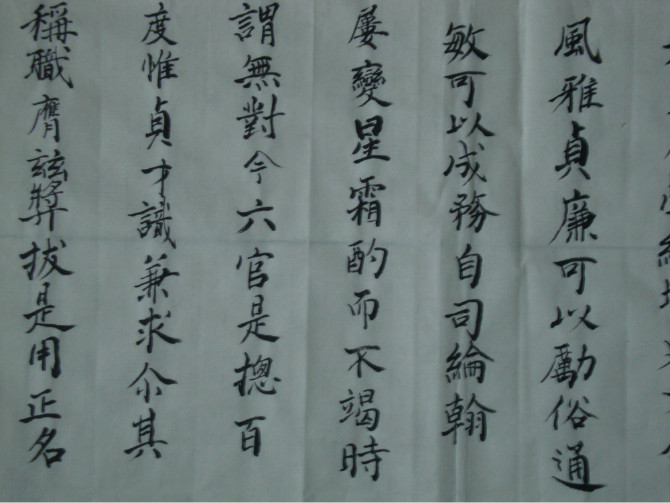 風雅貞廉可以勵俗通
敏可以成務自司綸翰
屢變星霜酌而不竭時
謂無對今六官是摠百
度惟貞才識兼求尒其
稱職膺玆獎拔是用正名